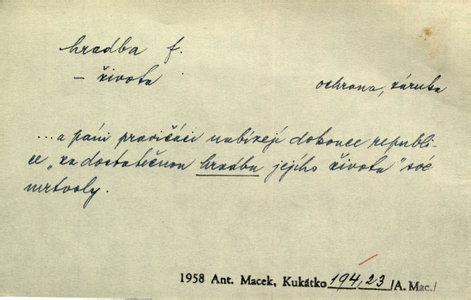 hradba f.
– života
ochrona, záruka
...a páni pravičáci nabízejí dokonce republi-
ce „za dostatečnou hradbu jejího života“
mrtvoly.
1958 Ant. Macek, Kukátko 194,23 /A. Mac./